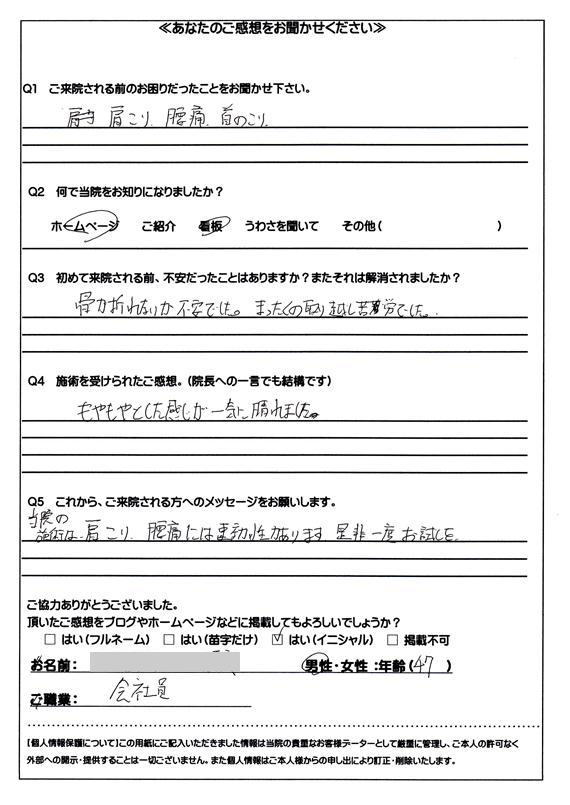 ≪あなたのご感想をお聞かせください≫
Q1 ご来院される前のお困りだったことをお聞かせ下さい。
肩こり 腰痛 首のこり
Q2 何で当院をお知りになりましたか?
ホームページ ご紹介 看板 うわさを聞いて その他( )
Q3 初めて来院される前、不安だったことはありますか?またそれは解消されましたか?
骨が折れないか不安でした。まったくの取り越し苦労でした。
Q4 施術を受けられたご感想。(院長への一言でも結構です)
もやもやとした感じが一気に晴れました。
Q5 これから、ご来院される方へのメッセージをお願いします。
当院の
施術は、肩こり、腰痛には 性があります 是非一度お試しを。
ご協力ありがとうございました。
頂いたご感想をブログやホームページなどに掲載してもよろしいでしょうか?
□ はい(フルネーム) □ はい(苗字だけ) ☑ はい(イニシャル) □ 掲載不可
お名前:
男性・女性 :年齢(47 )
ご職業: 会社員
【個人情報保護について】この用紙にご記入いただきました情報は当院の貴重なお客様データーとして厳重に管理し、ご本人の許可なく
外部への開示・提供することは一切ございません。また個人情報はご本人様からの申し出により訂正・削除いたします。